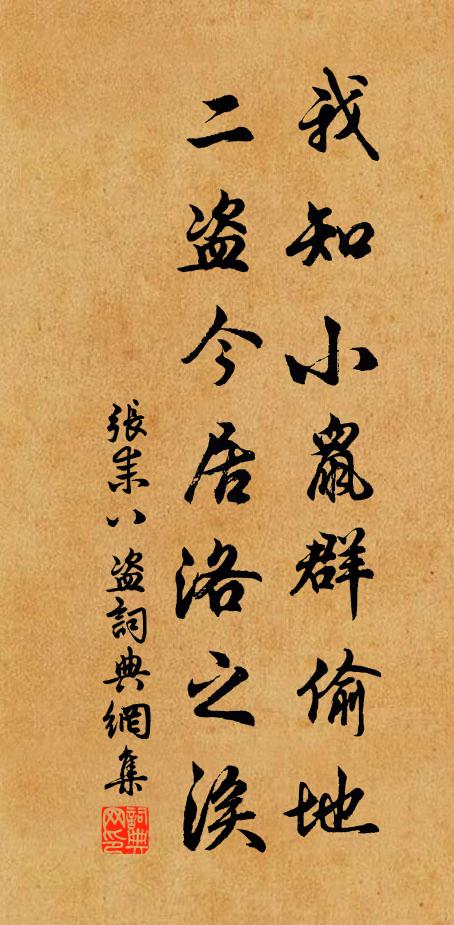 我知小鼠群偷地
二盗今居洛之涘
張耒八盗詞典網集
詞典网印